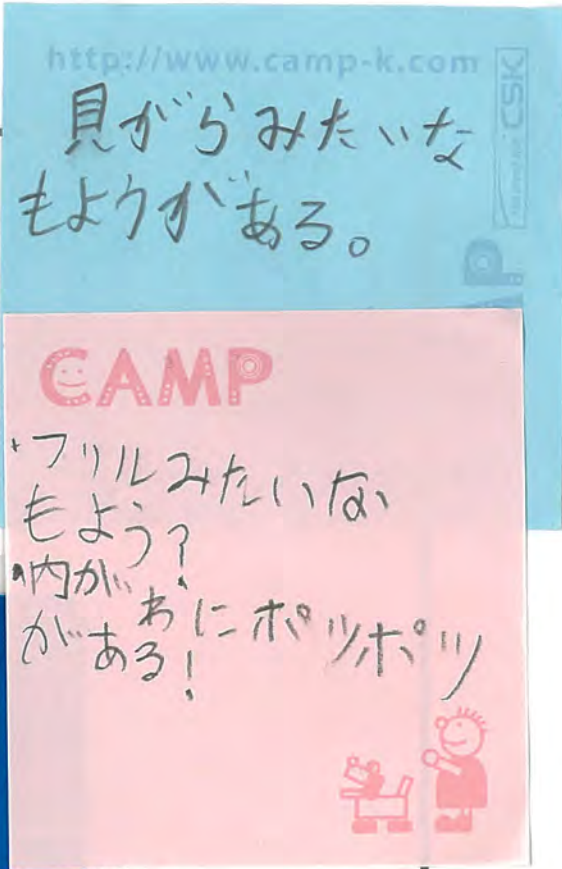 http://www.camp-k.com
CSK
貝がらみたいな
もようがある。
CAMP
・フリルみたいな
もよう?
・内がわにポツポツ
がある!